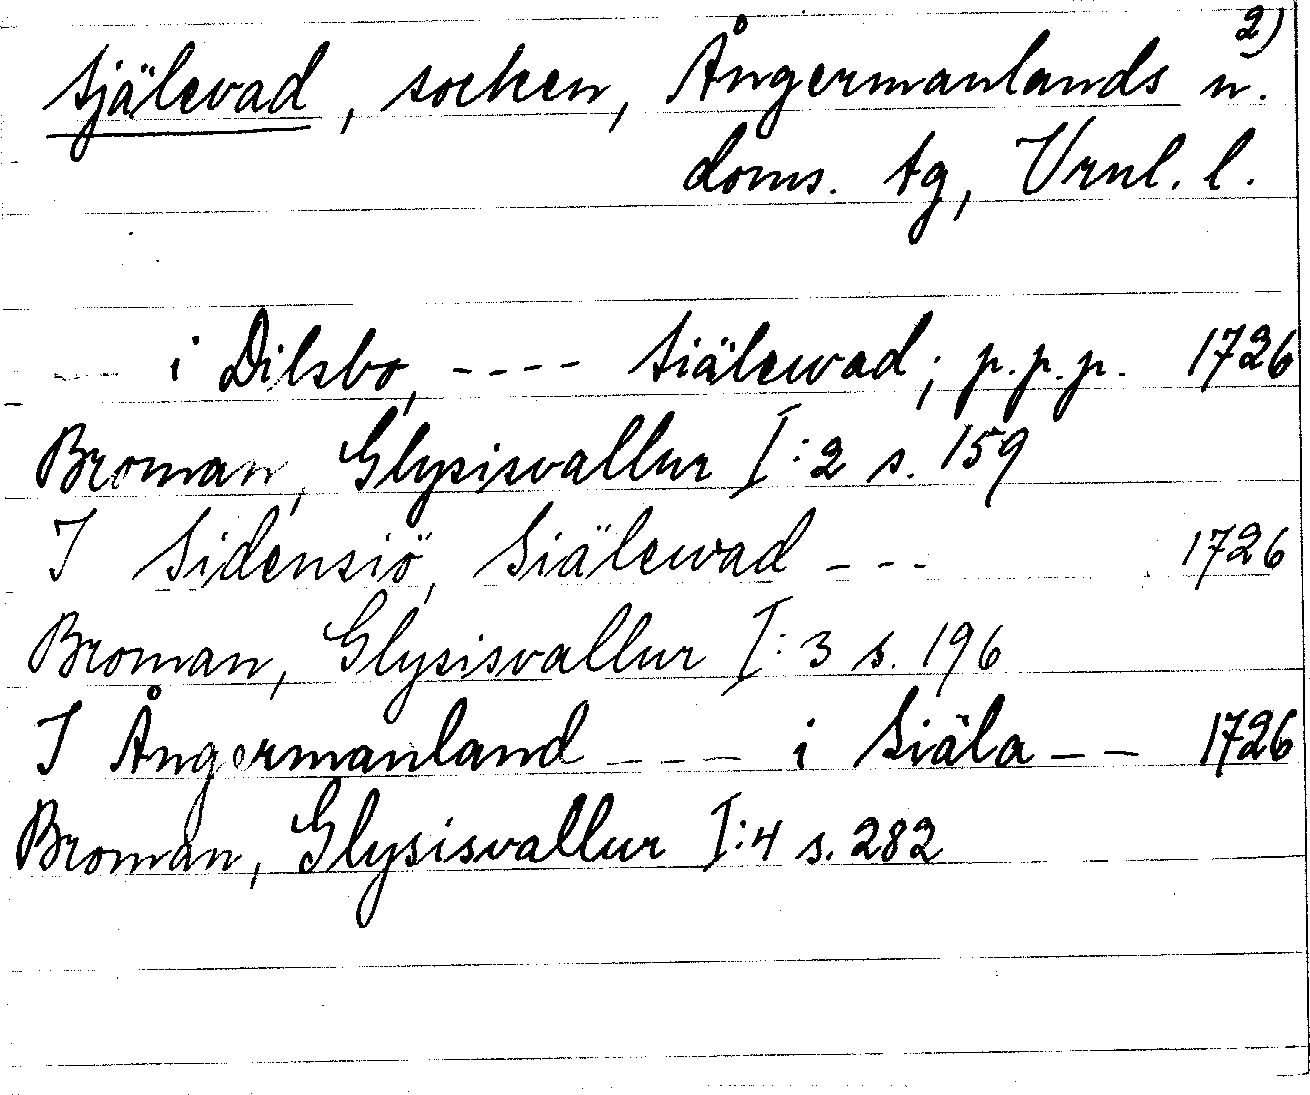 2)
Själevad, socken, Ångermanlands n.
doms. tg, Vrnl. l.
---- i Dilsbo, ---- Siälewad; p.p.p. 1726
Broman, Glysisvallur I:2 s. 159
I Sidensiö, Siälewad --- 1726
Broman, Glysisvallur I:3 s. 196
I Ångermanland --- i Siäla -- 1726
Broman, Glysisvallur I:4 s. 282